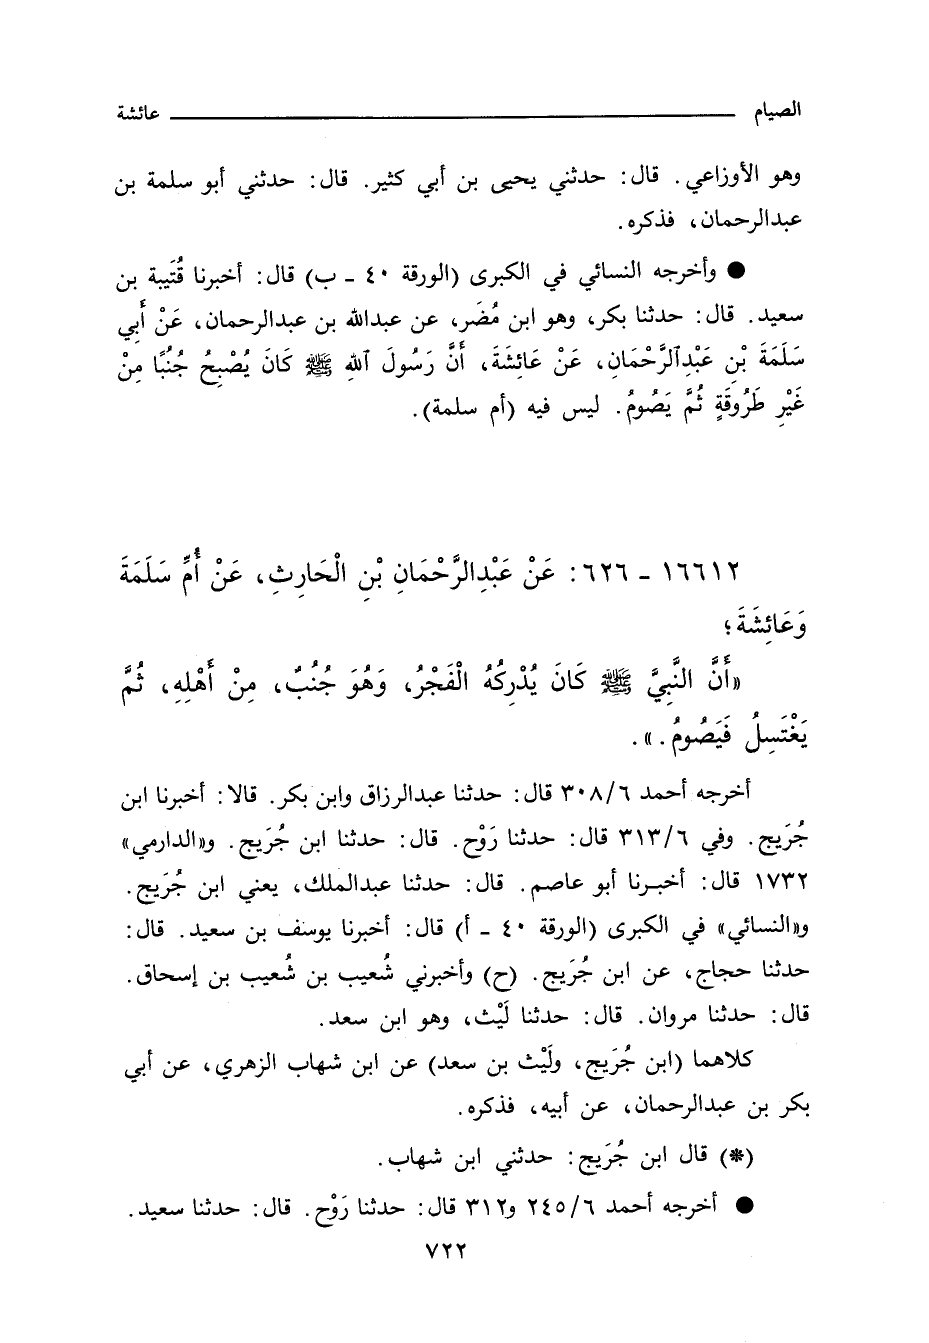 الصيام ــــــــــــــــــــ عائشة
وهو الأوزاعي. قال: حدثني يحيى بن أبي كثير. قال: حدثني أبو سلمة بن
عبدالرحمان، فذكره.
● وأخرجه النسائي في الكبرى (الورقة ٤٠ ـ ب) قال: أخبرنا قُتَيبة بن
سعيد. قال: حدثنا بكر، وهو ابن مُضَر، عن عبدالله بن عبدالرحمان، عَنْ أَبِي
سَلَمَةَ بْنِ عَبْدِالرَّحْمَانِ، عَنْ عَائِشَةَ، أَنَّ رَسُولَ اللهِ ﷺ كَانَ يُصْبِحُ جُنُبًا مِنْ
غَيْرِ طَرُوقَةٍ ثُمَّ يَصُومُ. ليس فيه (أم سلمة).
١٦٦١٢ ـ ٦٢٦: عَنْ عَبْدِالرَّحْمَانِ بْنِ الْحَارِثِ، عَنْ أُمِّ سَلَمَةَ
وَعَائِشَةَ؛
«أَنَّ النَّبِيَّ ﷺ كَانَ يُدْرِكُهُ الْفَجْرُ، وَهُوَ جُنُبٌ، مِنْ أَهْلِهِ، ثُمَّ
يَغْتَسِلُ فَيَصُومُ.».
أخرجه أحمد ٣٠٨/٦ قال: حدثنا عبدالرزاق وابن بكر. قالا: أخبرنا ابن
جُرَيج. وفي ٣١٣/٦ قال: حدثنا رَوْح. قال: حدثنا ابن جُرَيج. و«الدارمي»
١٧٣٢ قال: أخبرنا أبو عاصم. قال: حدثنا عبدالملك، يعني ابن جُرَيج.
و«النسائي» في الكبرى (الورقة ٤٠ ـ أ) قال: أخبرنا يوسف بن سعيد. قال:
حدثنا حجاج، عن ابن جُرَيج. (ح) وأخبرني شُعيب بن شُعيب بن إسحاق.
قال: حدثنا مروان. قال: حدثنا لَيْث، وهو ابن سعد.
كلاهما (ابن جُرَيج، ولَيْث بن سعد) عن ابن شهاب الزهري، عن أبي
بكر بن عبدالرحمان، عن أبيه، فذكره.
(*) قال ابن جُرَيج: حدثني ابن شهاب.
● أخرجه أحمد ٢٤٥/٦ و٣١٢ قال: حدثنا رَوْح. قال: حدثنا سعيد.
٧٢٢